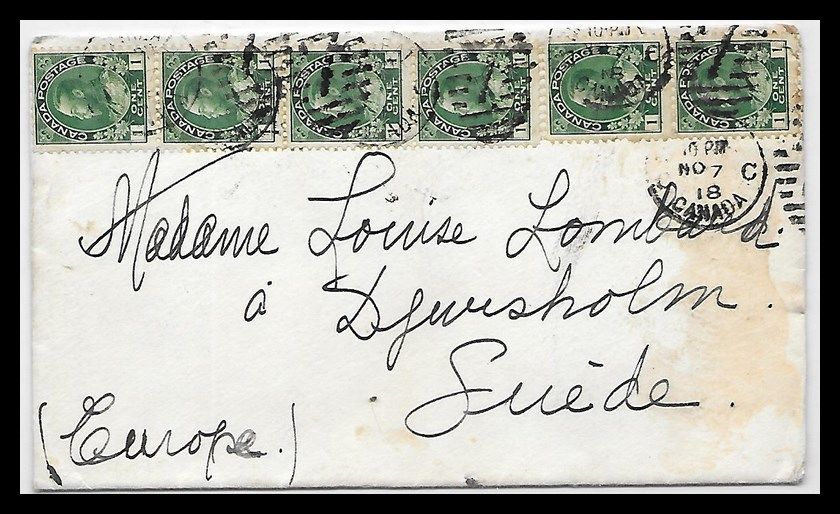 CANADA POSTAGE 1 ONE CENT 1 CANADA POSTAGE 1 ONE CENT CANADA POSTAGE CENT CANADA POSTAGE 1 CENT 1 CANADA POSTAGE 1 ONE CENT 1 CANADA POSTAGE CENT 1
10 PM
NO 7 C
18
CANADA
Madame Louise Lombard.
à Djursholm.
Suède.
(Europe.)